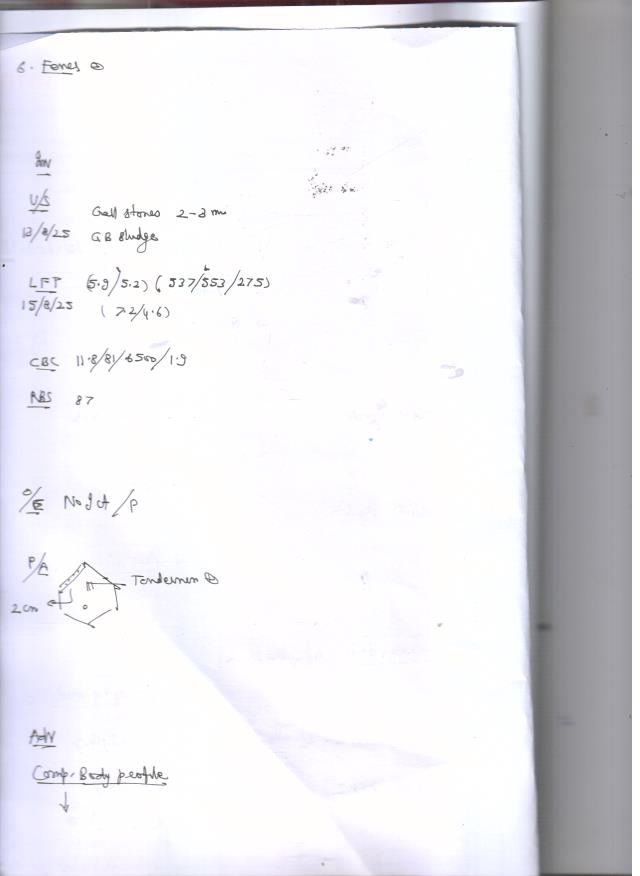 6. Fever ⊕
Inv
U/S
Gall stones 2-3 mm
13/8/25 GB sludge
LFT (5.9/5.2) ( 537/553/275)
15/8/25 ( 7.2/4.6)
CBC 11.8/81/6500/1.9
RBS 87
O/E No J A/P
P/A Tenderness ⊕
2 cm
Adv
Comp. Body profile
↓